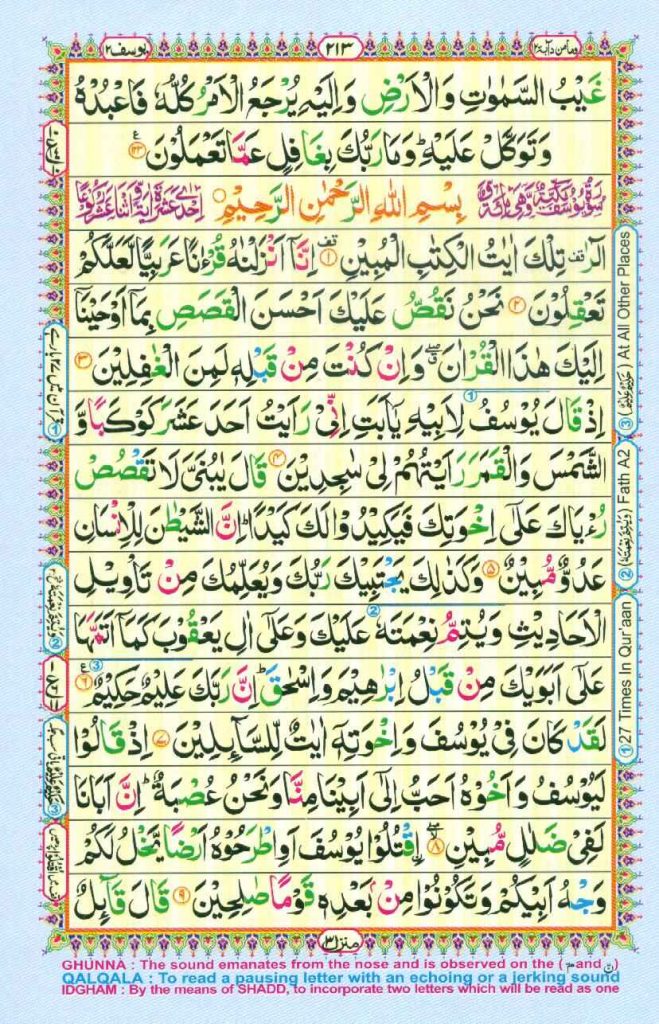 يوسف ١٢
٢١٣
ومامن دآبة ١٢
غَيْبُ السَّمٰوٰتِ وَالْاَرْضِ وَاِلَيْهِ يُرْجَعُ الْاَمْرُ كُلُّهٗ فَاعْبُدْهُ
وَتَوَكَّلْ عَلَيْهِ ؕ وَمَا رَبُّكَ بِغَافِلٍ عَمَّا تَعْمَلُوْنَ ۟
بِسْمِ اللّٰهِ الرَّحْمٰنِ الرَّحِيْمِ
الٓرٰ ۫ تِلْكَ اٰيٰتُ الْكِتٰبِ الْمُبِيْنِ ۟۫ ١ اِنَّاۤ اَنْزَلْنٰهُ قُرْءٰنًا عَرَبِيًّا لَّعَلَّكُمْ
تَعْقِلُوْنَ ٢ نَحْنُ نَقُصُّ عَلَيْكَ اَحْسَنَ الْقَصَصِ بِمَاۤ اَوْحَيْنَاۤ
اِلَيْكَ هٰذَا الْقُرْاٰنَ ۖۗ وَاِنْ كُنْتَ مِنْ قَبْلِهٖ لَمِنَ الْغٰفِلِيْنَ ٣
اِذْ قَالَ يُوْسُفُ لِاَبِيْهِ يٰۤاَبَتِ اِنِّيْ رَاَيْتُ اَحَدَ عَشَرَ كَوْكَبًا وَّ
الشَّمْسَ وَالْقَمَرَ رَاَيْتُهُمْ لِيْ سٰجِدِيْنَ ٤ قَالَ يٰبُنَيَّ لَا تَقْصُصْ
رُءْيَاكَ عَلٰۤى اِخْوَتِكَ فَيَكِيْدُوْا لَكَ كَيْدًا ؕ اِنَّ الشَّيْطٰنَ لِلْاِنْسَانِ
عَدُوٌّ مُّبِيْنٌ ٥ وَكَذٰلِكَ يَجْتَبِيْكَ رَبُّكَ وَيُعَلِّمُكَ مِنْ تَاْوِيْلِ
الْاَحَادِيْثِ وَيُتِمُّ نِعْمَتَهٗ عَلَيْكَ وَعَلٰۤى اٰلِ يَعْقُوْبَ كَمَاۤ اَتَمَّهَا
عَلٰۤى اَبَوَيْكَ مِنْ قَبْلُ اِبْرٰهِيْمَ وَاِسْحٰقَ ؕ اِنَّ رَبَّكَ عَلِيْمٌ حَكِيْمٌ ٦
لَقَدْ كَانَ فِيْ يُوْسُفَ وَاِخْوَتِهٖۤ اٰيٰتٌ لِّلسَّآئِلِيْنَ ٧ اِذْ قَالُوْا
لَيُوْسُفُ وَاَخُوْهُ اَحَبُّ اِلٰۤى اَبِيْنَا مِنَّا وَنَحْنُ عُصْبَةٌ ؕ اِنَّ اَبَانَا
لَفِيْ ضَلٰلٍ مُّبِيْنٍ ۖۚ ٨ اِقْتُلُوْا يُوْسُفَ اَوِ اطْرَحُوْهُ اَرْضًا يَّخْلُ لَكُمْ
وَجْهُ اَبِيْكُمْ وَتَكُوْنُوْا مِنْۢ بَعْدِهٖ قَوْمًا صٰلِحِيْنَ ٩ قَالَ قَآئِلٌ
منزل ٣
③ At All Other Places
② Fath A2
① 27 Times In Qur'aan
GHUNNA : The sound emanates from the nose and is observed on the (م and ن)
QALQALA : To read a pausing letter with an echoing or a jerking sound
IDGHAM : By the means of SHADD, to incorporate two letters which will be read as one